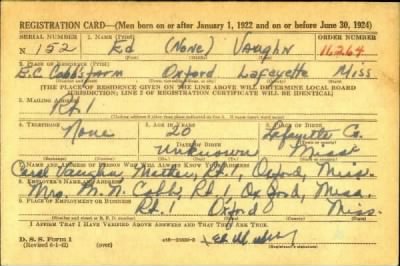 REGISTRATION CARD—(Men born on or after January 1, 1922 and on or before June 30, 1924)
SERIAL NUMBER 1. NAME (Print) ORDER NUMBER
N 152 Ed (None) Vaughn 11264
2. PLACE OF RESIDENCE (Print)
B.C. Cobbs farm Oxford Lafayette Miss
[THE PLACE OF RESIDENCE GIVEN ON THE LINE ABOVE WILL DETERMINE LOCAL BOARD
JURISDICTION; LINE 2 OF REGISTRATION CERTIFICATE WILL BE IDENTICAL]
3. MAILING ADDRESS
Rt 1
4. TELEPHONE 5. AGE IN YEARS 6. PLACE OF BIRTH
None 20 Lafayette Co.
DATE OF BIRTH
Unknown Miss
7. NAME AND ADDRESS OF PERSON WHO WILL ALWAYS KNOW YOUR ADDRESS
Vaughn, Mother, Rt 1, Oxford, Miss.
8. EMPLOYER'S NAME AND ADDRESS
Mrs. Cobb, Rt. 1, Oxford, Miss.
9. PLACE OF EMPLOYMENT OR BUSINESS
Rt. 1 Oxford Miss.
I AFFIRM THAT I HAVE VERIFIED ABOVE ANSWERS AND THAT THEY ARE TRUE.
D. S. S. Form 1
(Revised 6-1-42)
(Registrant's signature)